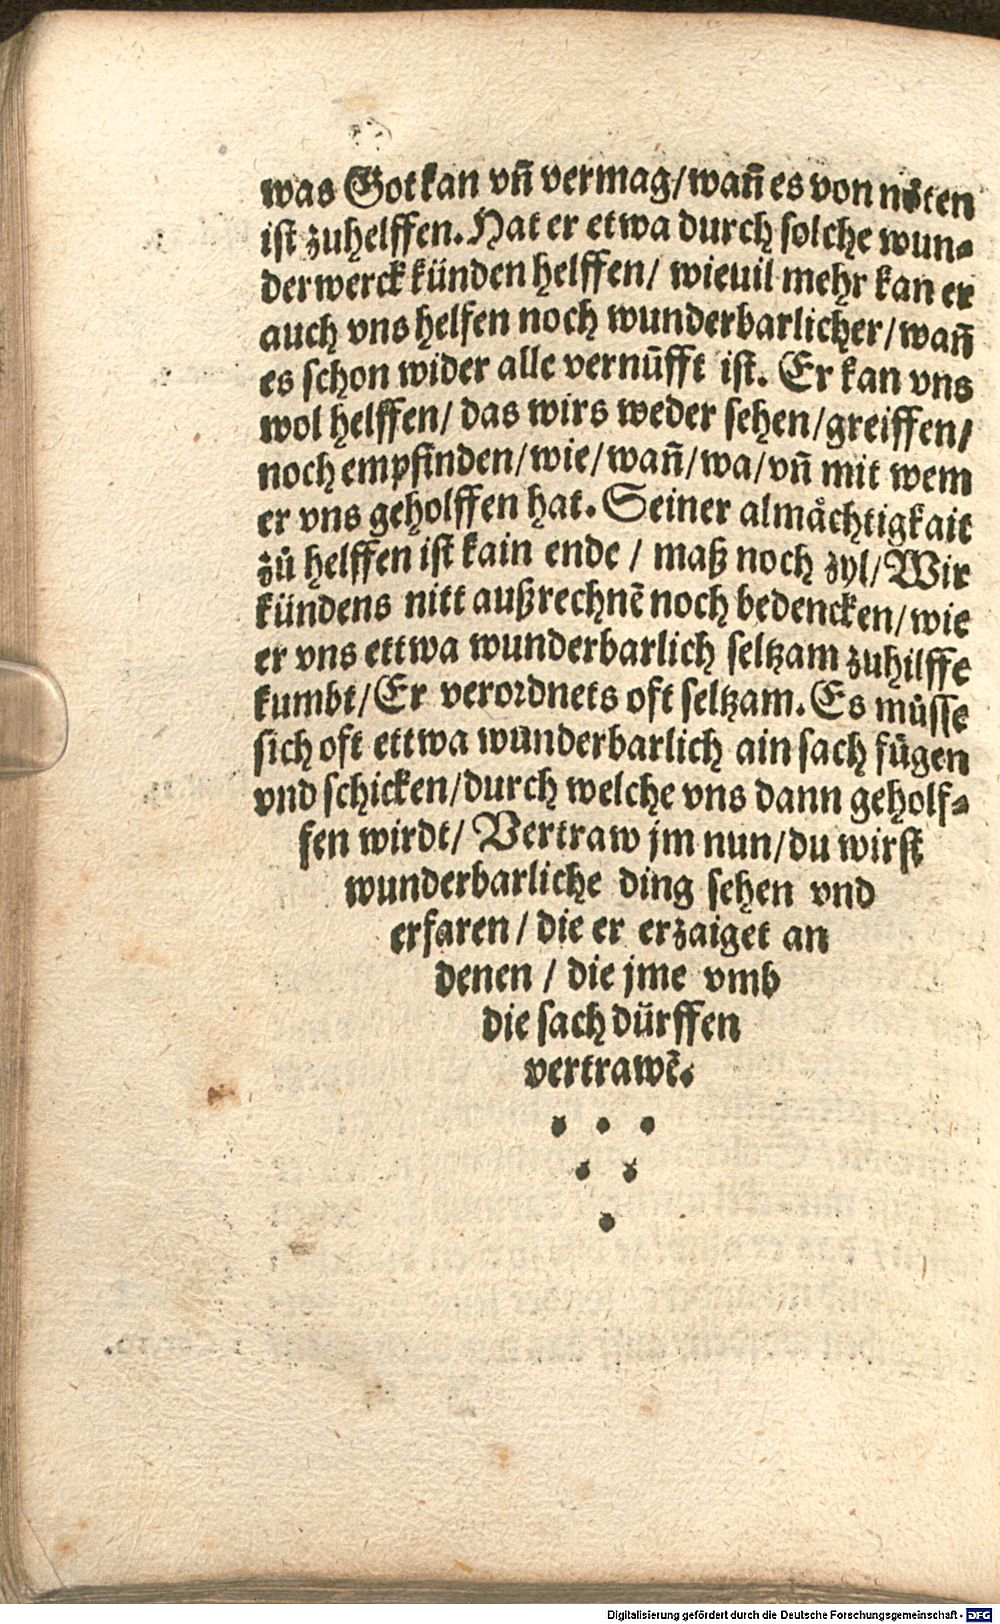 was Got kan vñ vermag/wañ es von nöten
ist zuhelffen. Hat er etwa durch solche wun-
derwerck künden helffen/ wieuil mehr kan er
auch vns helfen noch wunderbarlicher/wañ
es schon wider alle vernũfft ist. Er kan vns
wol helffen/ das wirs weder sehen/greiffen/
noch empfinden/wie/wañ/wa/vñ mit wem
er vns geholffen hat. Seiner almåchtigkait
zů helffen ist kain ende / maß noch zyl/Wir
kündens nitt außrechnẽ noch bedencken/wie
er vns ettwa wunderbarlich seltzam zuhilffe
kumbt/Er verordnets oft seltzam. Es müsse
sich oft ettwa wunderbarlich ain sach fügen
vnd schicken/durch welche vns dann geholf-
fen wirdt/ Vertraw jm nun/du wirst
wunderbarliche ding sehen vnd
erfaren / die er erzaiget an
denen / die jme vmb
die sach dürffen
vertrawẽ.
Digitalisierung gefördert durch die Deutsche Forschungsgemeinschaft - DFG